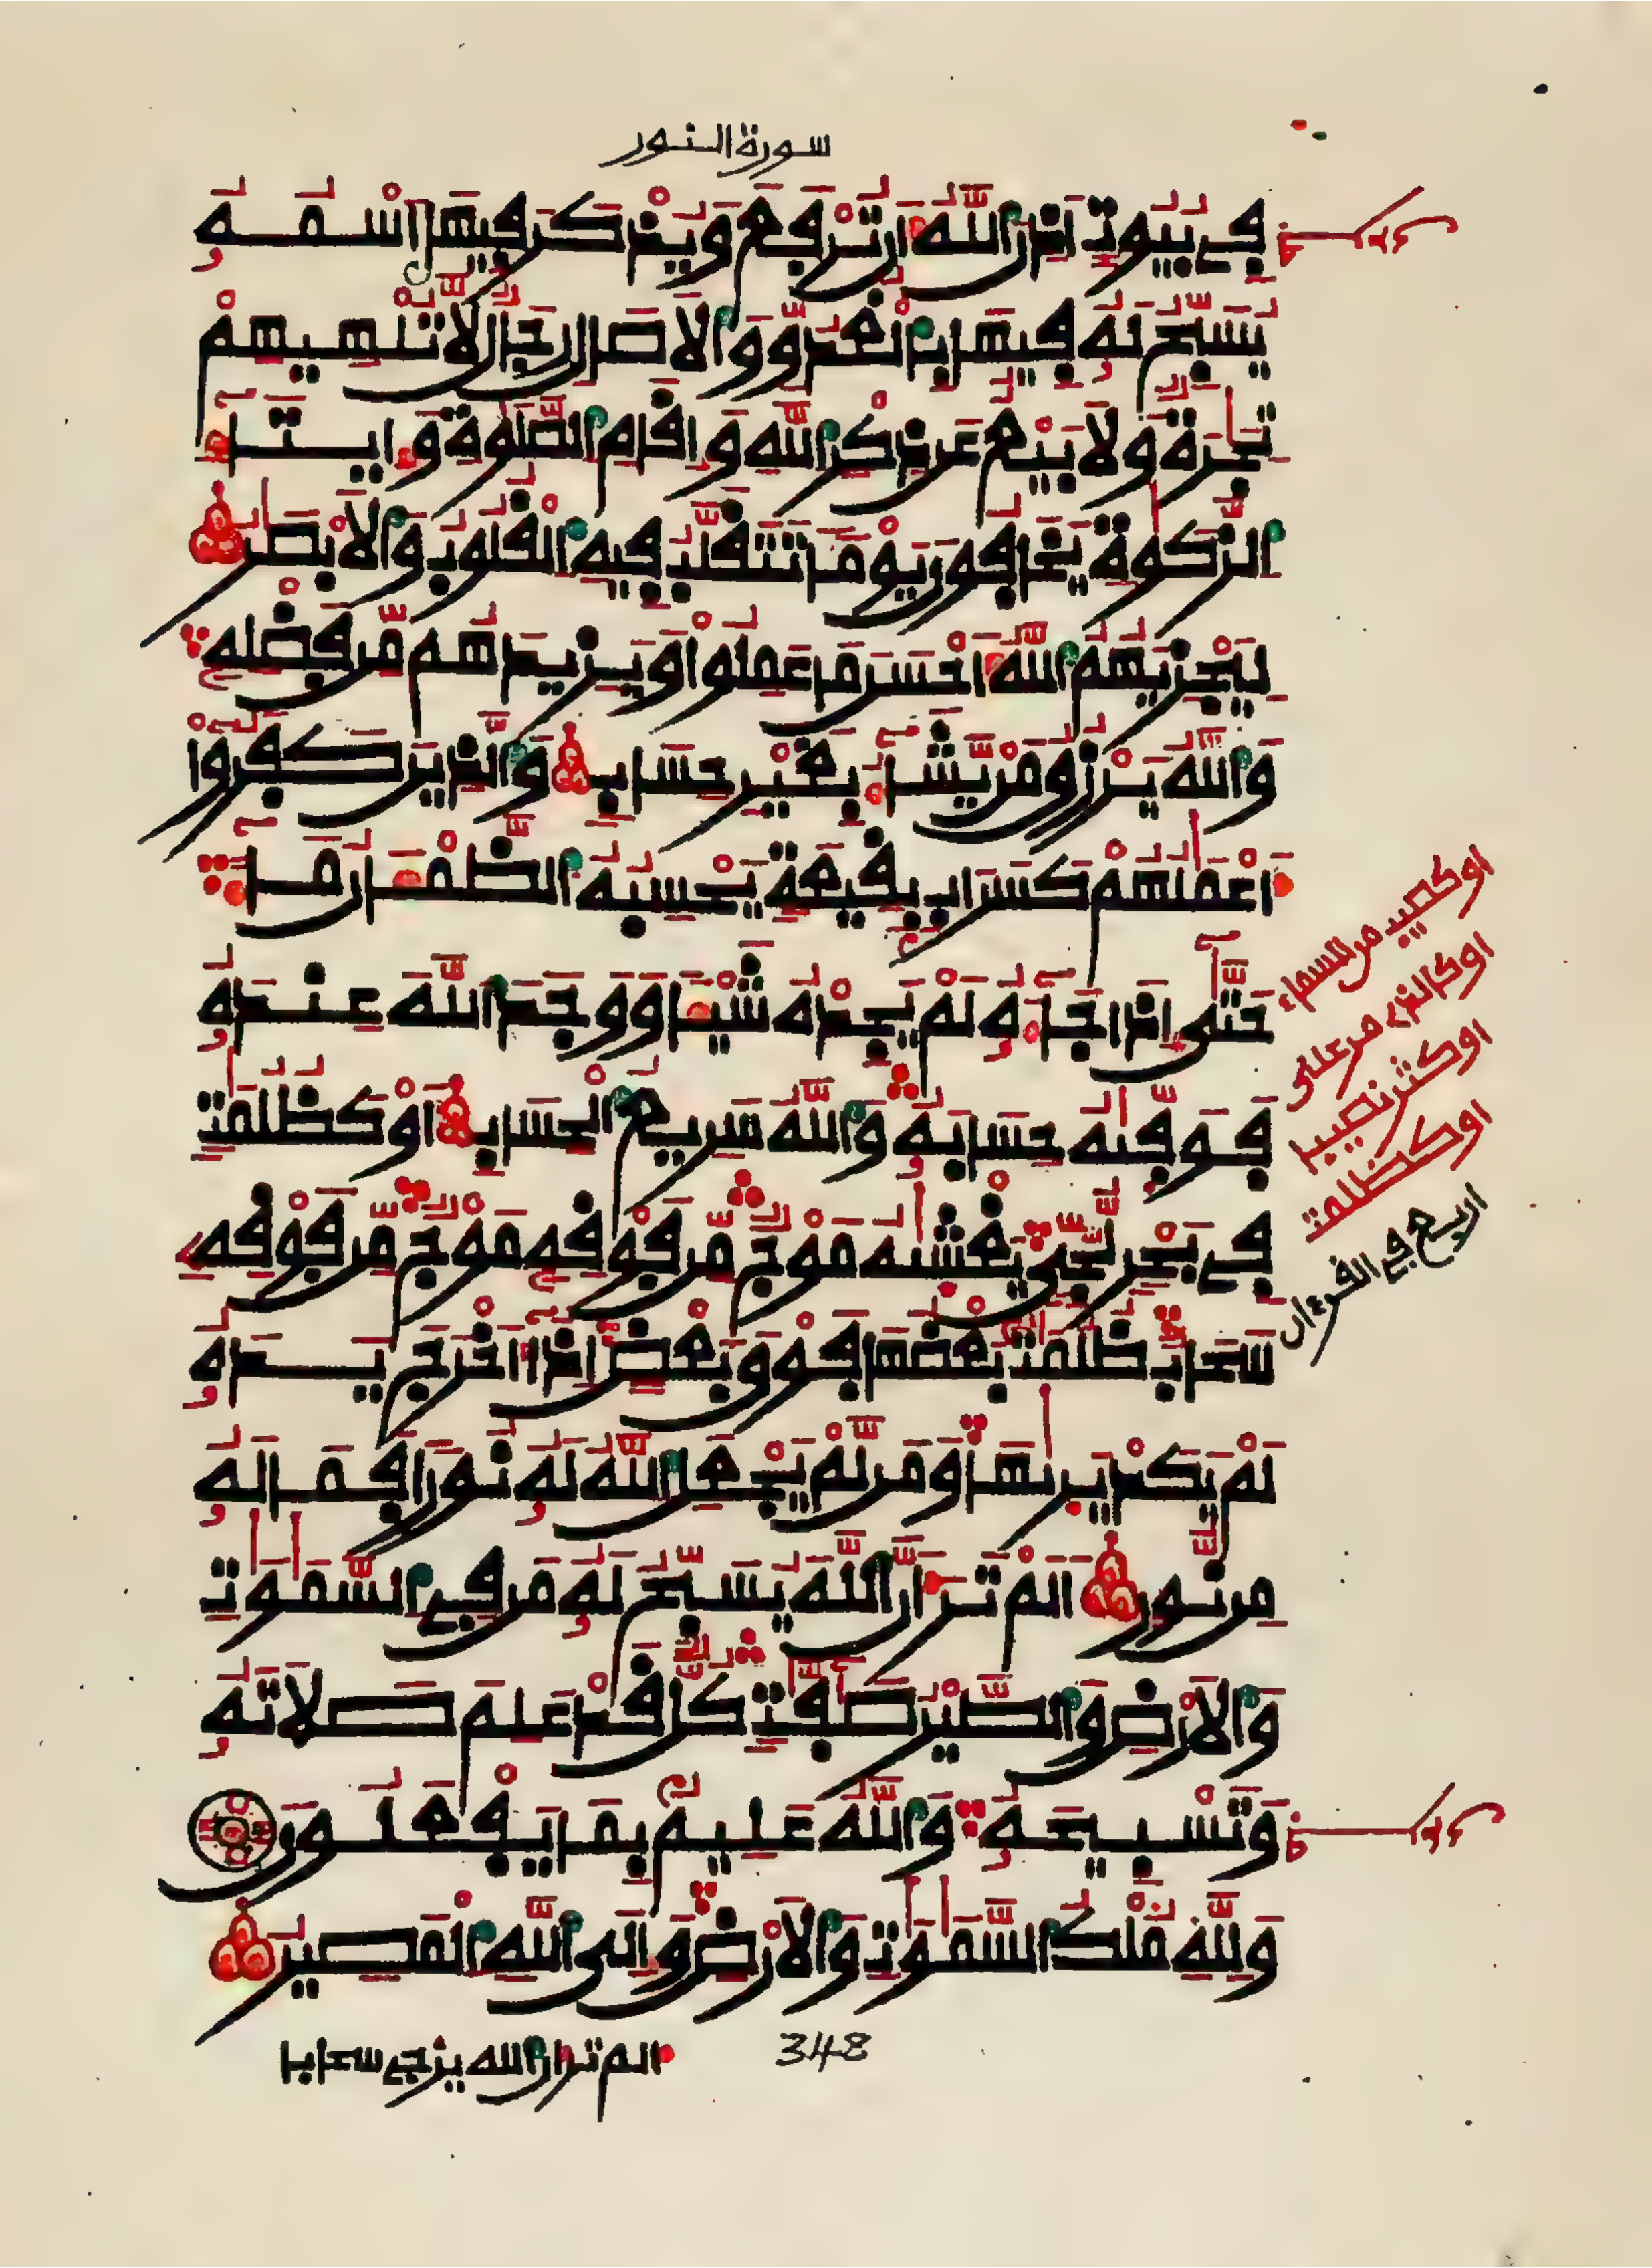 سورة النور
فِے بُيُوتٍ اَذِنَ اَللَّهُ أَن تُرْفَعَ وَيُذْكَرَ فِيهَا اَسْمُهُۥ
يُسَبِّحُ لَهُۥ فِيهَا بِالْغُدُوِّ وَالَاصَالِ رِجَالٌ لَّا تُلْهِيهِمْ
تِجَٰرَةٌ وَلَا بَيْعٌ عَن ذِكْرِ اِللَّهِ وَإِقَامِ اِلصَّلَوٰةِ وَإِيتَآءِ
اِلزَّكَوٰةِ يَخَافُونَ يَوْماً تَتَقَلَّبُ فِيهِ اِلْقُلُوبُ وَالَابْصَٰرُ
لِيَجْزِيَهُمُ اُللَّهُ أَحْسَنَ مَا عَمِلُواْ وَيَزِيدَهُم مِّن فَضْلِهِۦ
وَاللَّهُ يَرْزُقُ مَنْ يَّشَآءُ بِغَيْرِ حِسَابٍ وَالذِينَ كَفَرُوٓاْ
أَعْمَٰلُهُمْ كَسَرَابِۢ بِقِيعَةٍ يَحْسِبُهُ اُلظَّمْـَٔانُ مَآءً
حَتَّىٰٓ إِذَا جَآءَهُۥ لَمْ يَجِدْهُ شَيْـٔاً وَوَجَدَ اَللَّهَ عِندَهُۥ
فَوَفَّيٰهُ حِسَابَهُۥ وَاللَّهُ سَرِيعُ اُلْحِسَابِ أَوْ كَظُلُمَٰتٍ
فِے بَحْرٍ لُّجِّىٍّ يَغْشَيٰهُ مَوْجٌ مِّن فَوْقِهِۦ مَوْجٌ مِّن فَوْقِهِۦ
سَحَابٌ ظُلُمَٰتُۢ بَعْضُهَا فَوْقَ بَعْضٍ إِذَآ أَخْرَجَ يَدَهُۥ
لَمْ يَكَدْ يَرَىٰهَا وَمَن لَّمْ يَجْعَلِ اِللَّهُ لَهُۥ نُوراً فَمَا لَهُۥ
مِن نُّورٍ اَلَمْ تَرَ أَنَّ اَللَّهَ يُسَبِّحُ لَهُۥ مَن فِے اِلسَّمَٰوَٰتِ
وَالَارْضِ وَالطَّيْرُ صَٰٓفَّٰتٍ كُلٌّ قَدْ عَلِمَ صَلَاتَهُۥ
وَتَسْبِيحَهُۥ وَاللَّهُ عَلِيمُۢ بِمَا يَفْعَلُونَ
وَلِلَّهِ مُلْكُ اُلسَّمَٰوَٰتِ وَالَارْضِ وَإِلَى اَللَّهِ اِلْمَصِيرُ
الم تر ان الله يزجے سحابا
348
او كصيب من السماء
او كالذے مر على
او كظلمت
اربع فے القرءان